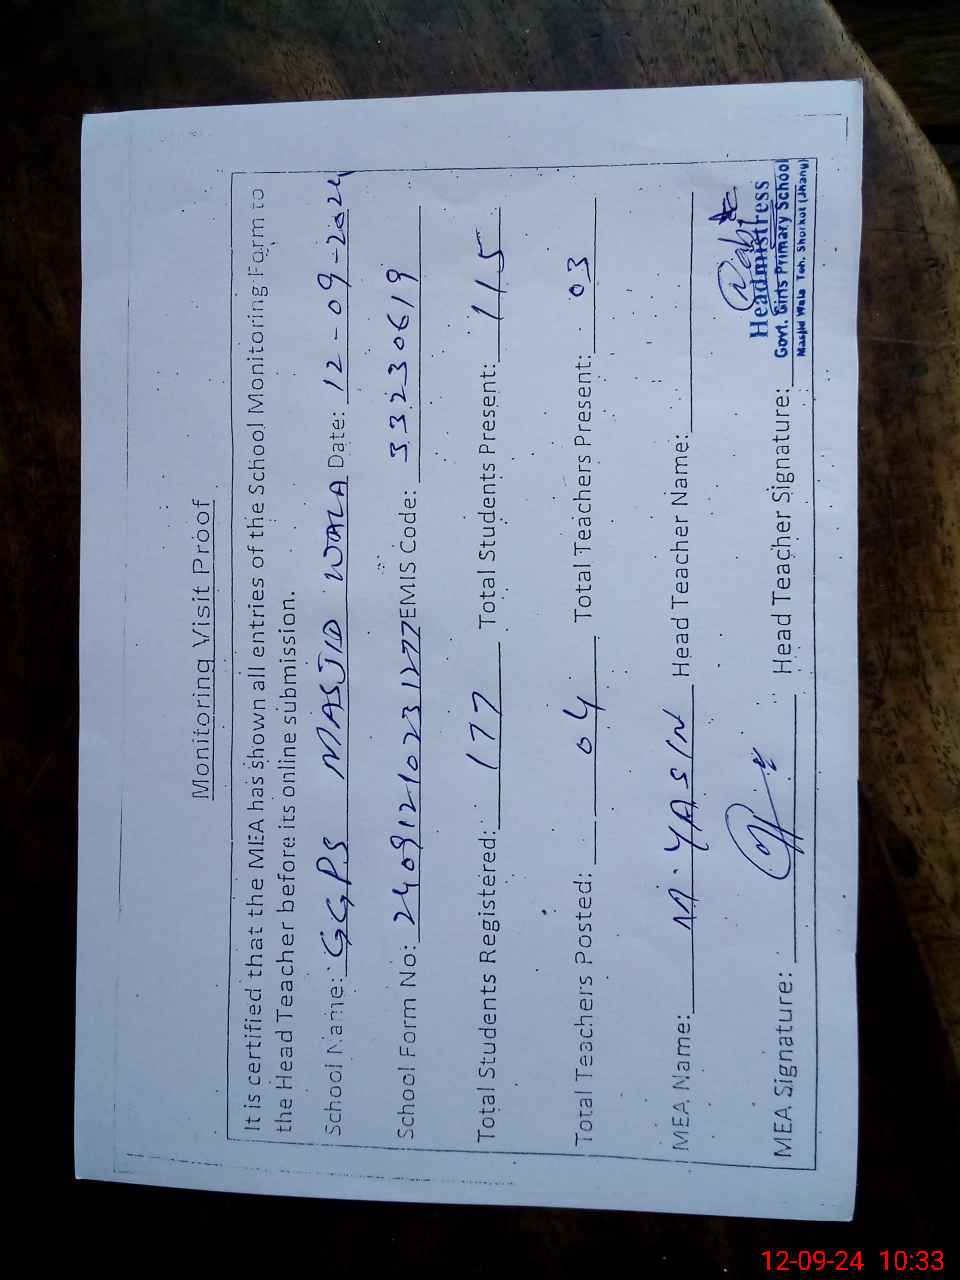 Monitoring Visit Proof
It is certified that the MEA has shown all entries of the School Monitoring Form to
the Head Teacher before its online submission.
School Name: GGPS MASJID WALA Date: 12-09-2024
School Form No: 24091210231277 EMIS Code: 33230619
Total Students Registered: 177 Total Students Present: 115
Total Teachers Posted: 04 Total Teachers Present: 03
MEA Name: M. YASIN Head Teacher Name:
MEA Signature: Head Teacher Signature:
Headmistress
Govt. Girls Primary School
Masjid Wala Teh. Shorkot (Jhang)
12-09-24 10:33